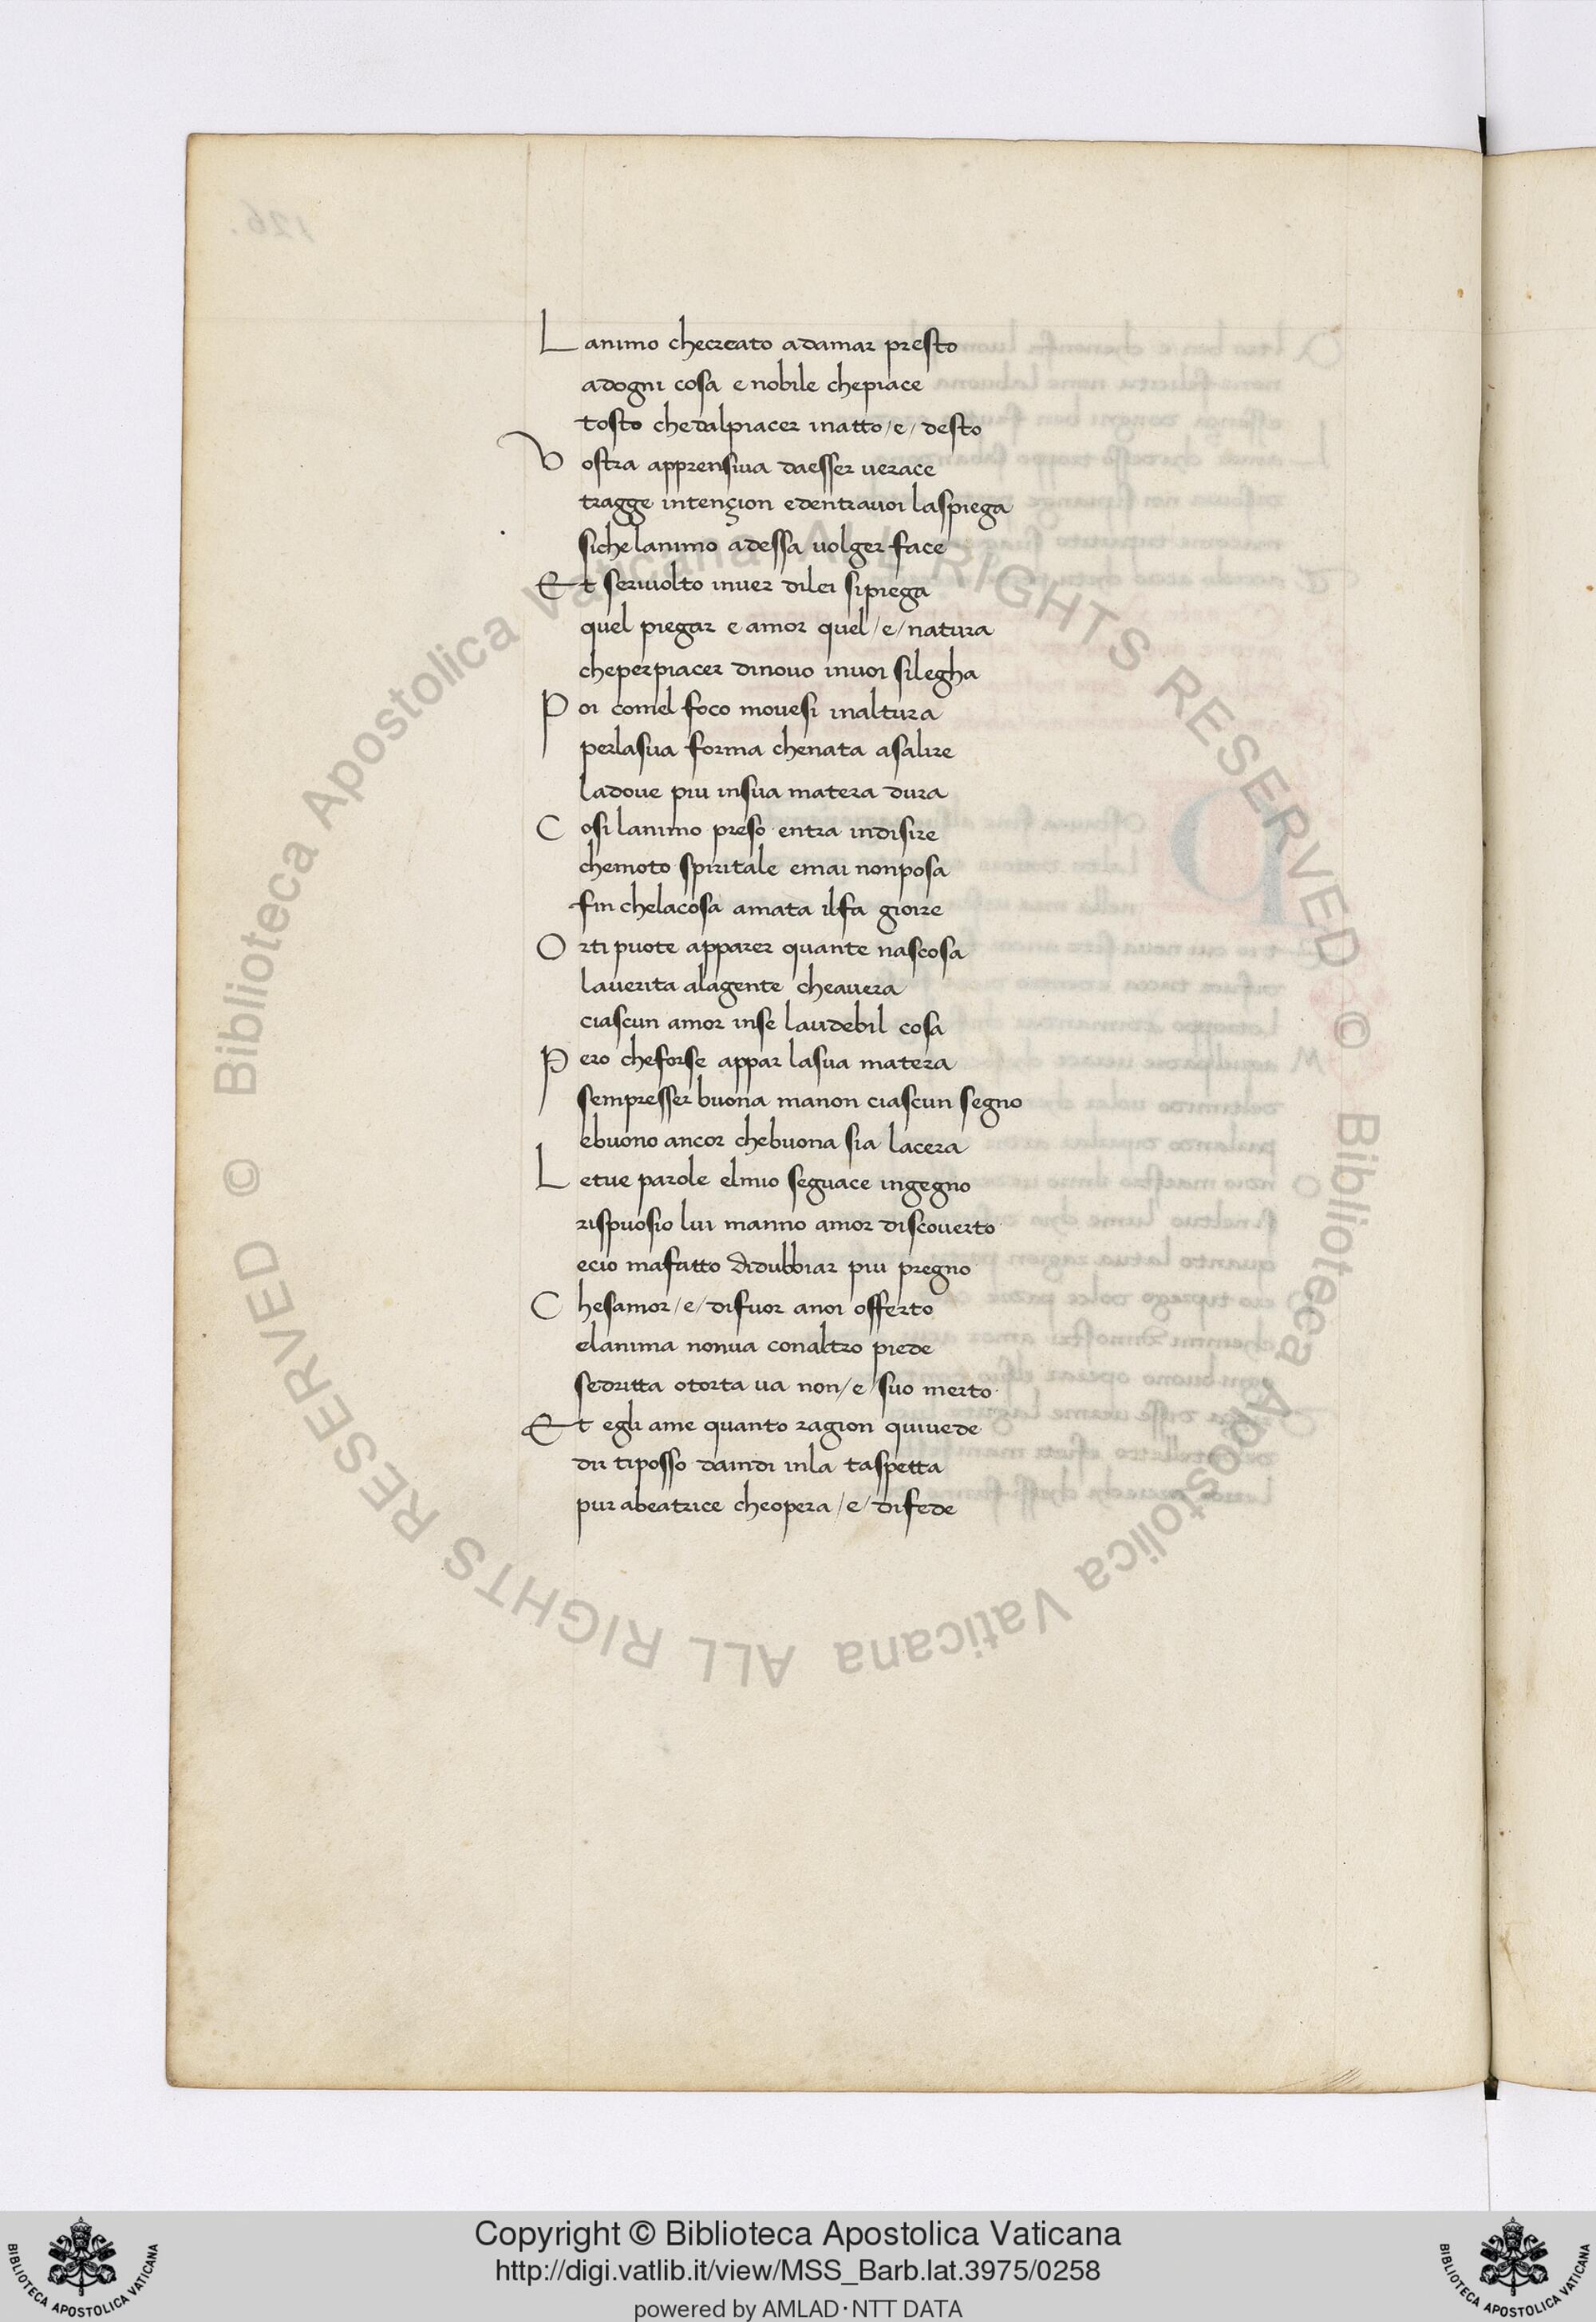 L animo checreato adamar presto
adogni cosa e nobile chepiace
tosto chedalpiacer inatto/e/ desto
V ostra apprensiua daesser uerace
tragge intençion edentrauoi laspiega
sichelanimo adessa uolger face
Et seriuolto inuer dilei sipiega
quel piegar e amor quel/e/natura
cheperpiacer dinouo inuoi silegha
P oi comel foco mouesi inaltura
perlasua forma chenata asalire
ladoue piu insua matera dura
C osi lanimo preso entra indisire
chemoto spiritale emai nonposa
fin chelacosa amata ilfa gioire
O rti puote apparer quante nascosa
lauerita alagente cheauera
ciascun amor inse laudebil cosa
P ero cheforse appar lasua matera
sempresser buona manon ciascun segno
ebuono ancor chebuona sia lacera
L etue parole elmio seguace ingegno
rispuosio lui manno amor discouerto
ecio mafatto didubbiar piu pregno
C hesamor/e/difuor anoi offerto
elanima nonua conaltro piede
sedritta otorta ua non/e/suo merto
Et egli ame quanto ragion quiuede
dir tiposso daindi inla taspetta
pur abeatrice cheopera/e/difede
© Biblioteca Apostolica Vaticana ALL RIGHTS RESERVED © Biblioteca Apostolica Vaticana ALL RIGHTS RESERVED
Copyright © Biblioteca Apostolica Vaticana
http://digi.vatlib.it/view/MSS_Barb.lat.3975/0258
powered by AMLAD·NTT DATA
BIBLIOTECA APOSTOLICA VATICANA
BIBLIOTECA APOSTOLICA VATICANA